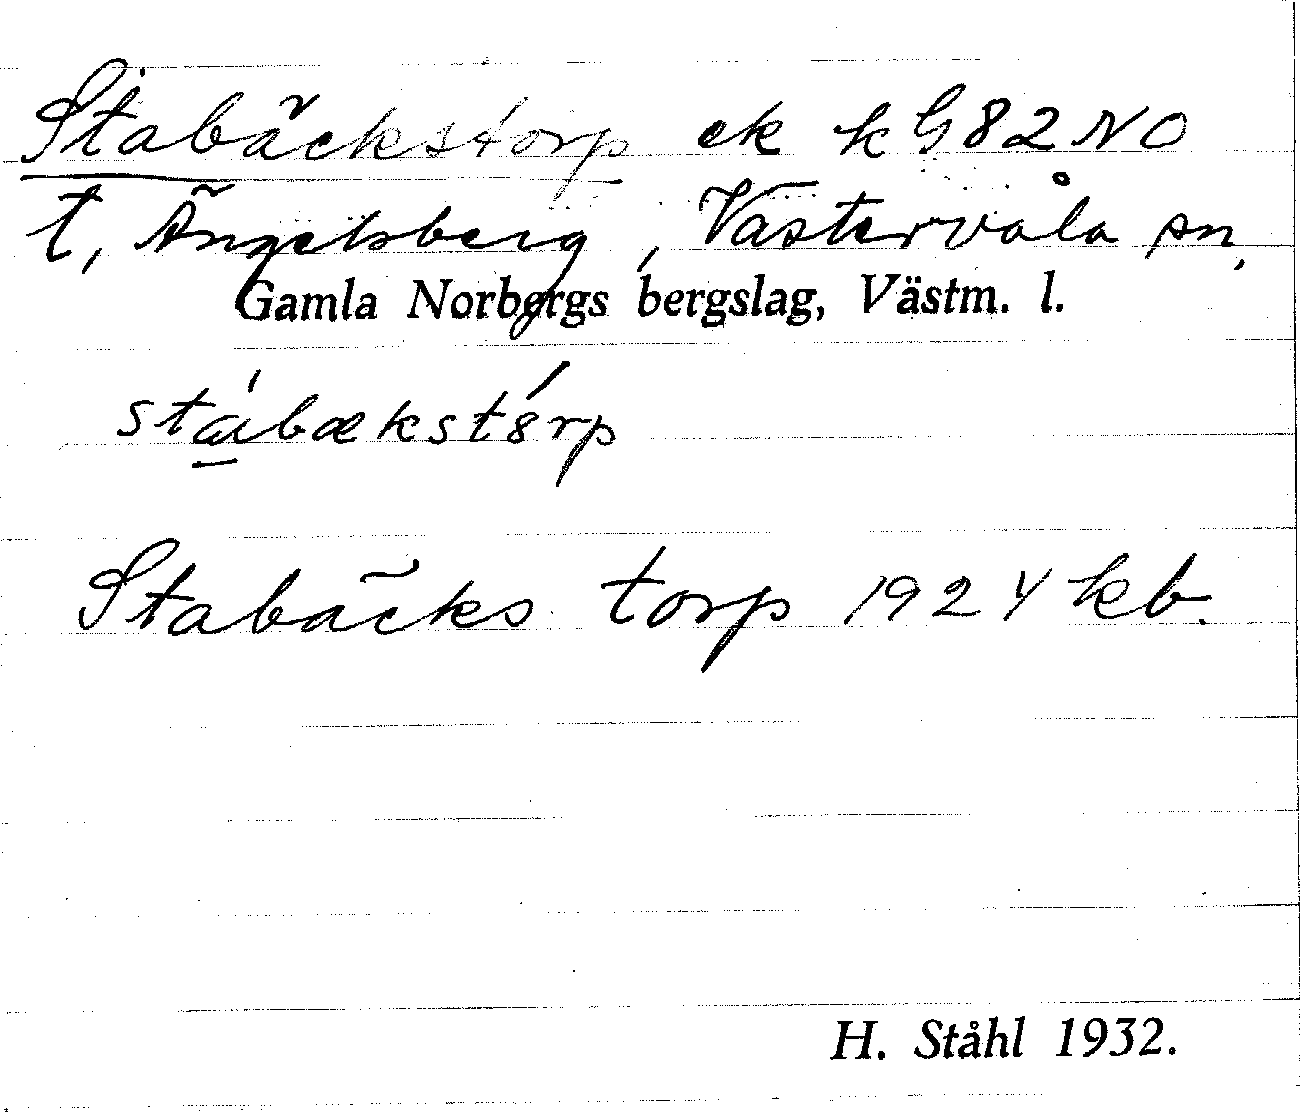 Stabäckstorp ek k G 82 NO
t, Ängelsberg, Västervåla sn,
Gamla Norbergs bergslag, Västm. l.
stábækstórp
Stabäcks torp 1924 kb.
H. Ståhl 1932.